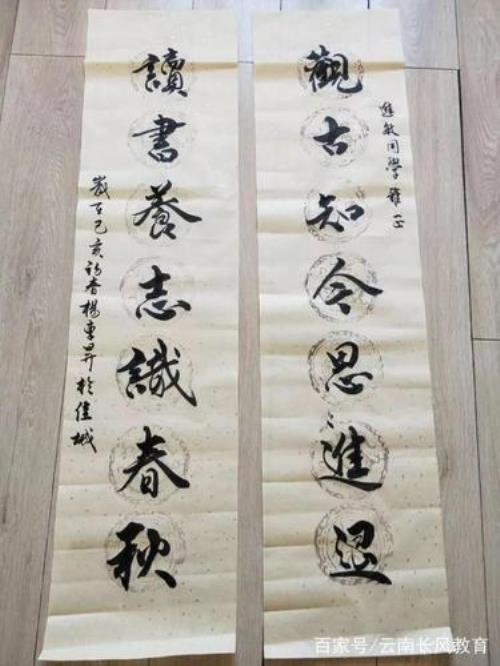 進敏同學雅正
觀古知今思進退
讀書養志識春秋
歲在己亥初春楊東昇於佳城
百家号/云南长风教育